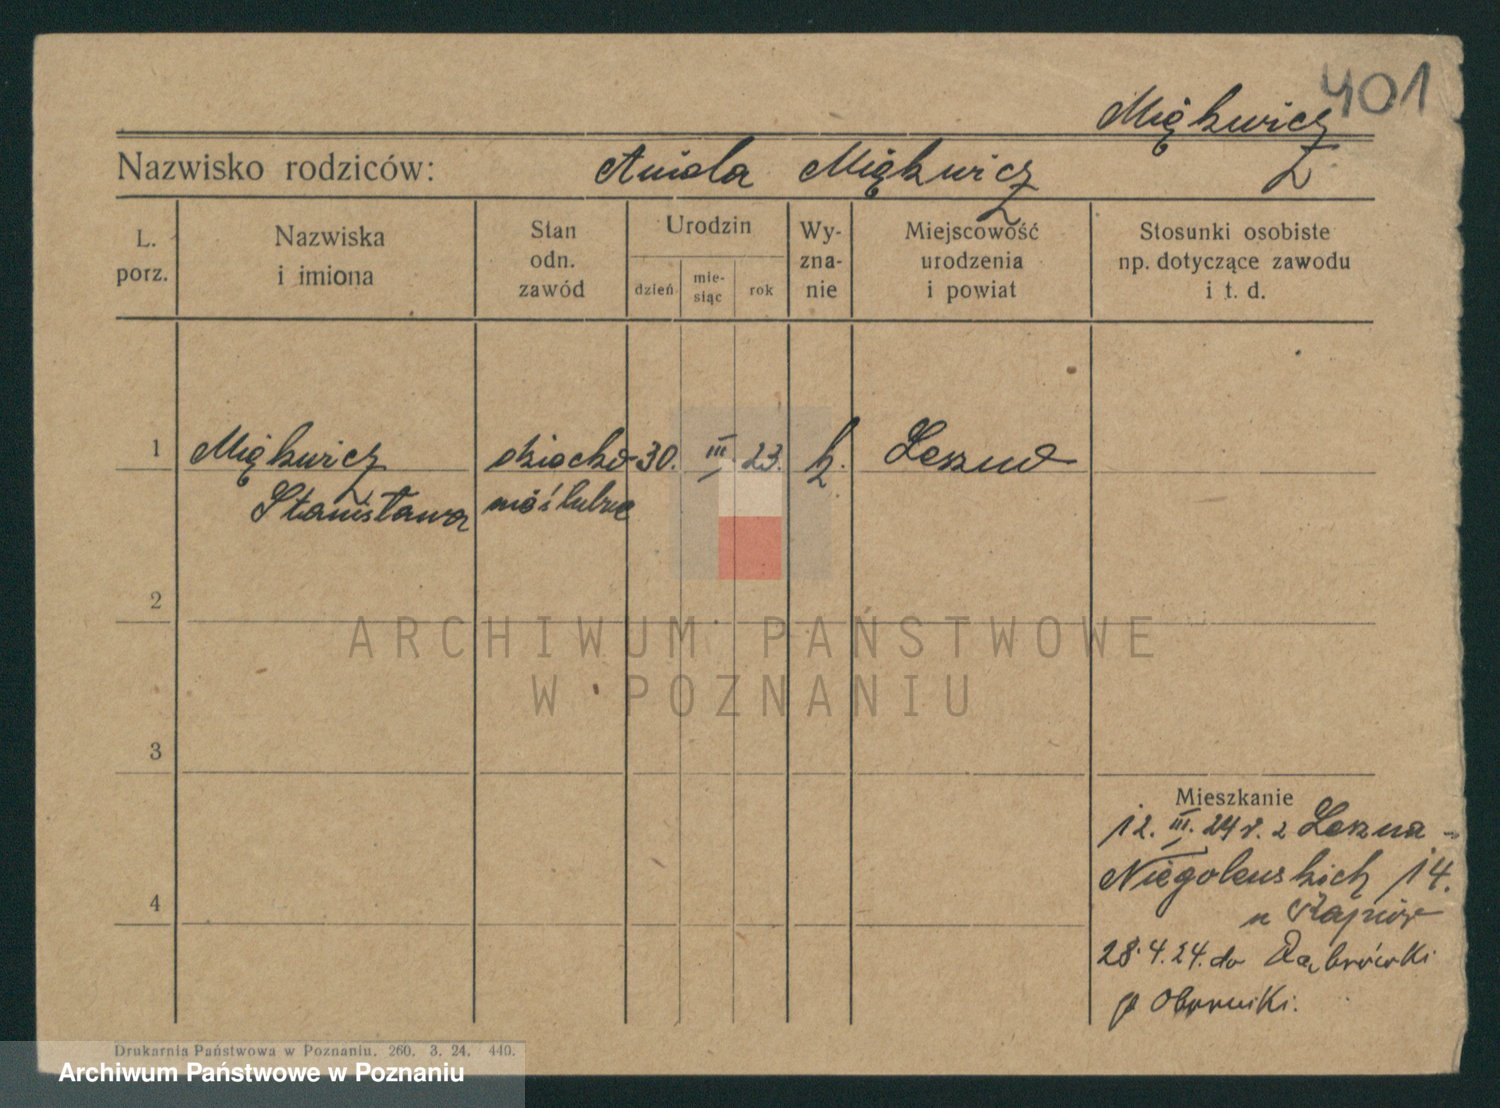 401
Miękwicz
Nazwisko rodziców: Aniela Miękwicz
L. porz.
Nazwiska i imiona
Stan odn. zawód
Urodzin
dzień
mie-
siąc
rok
Wy-
zna-
nie
Miejscowość
urodzenia
i powiat
Stosunki osobiste
np. dotyczące zawodu
i t. d.
1 Miękwicz dziecko 30. III 23. k. Leszno
Stanisława nieślubne
2
ARCHIWUM PAŃSTWOWE
W POZNANIU
3
Mieszkanie
12. III. 24 r. z Leszna -
Niegolewskich 14.
4
u
28.4.24. do Dąbrówki
p Oborniki.
Drukarnia Państwowa w Poznaniu. 260. 3. 24. 440.
Archiwum Państwowe w Poznaniu